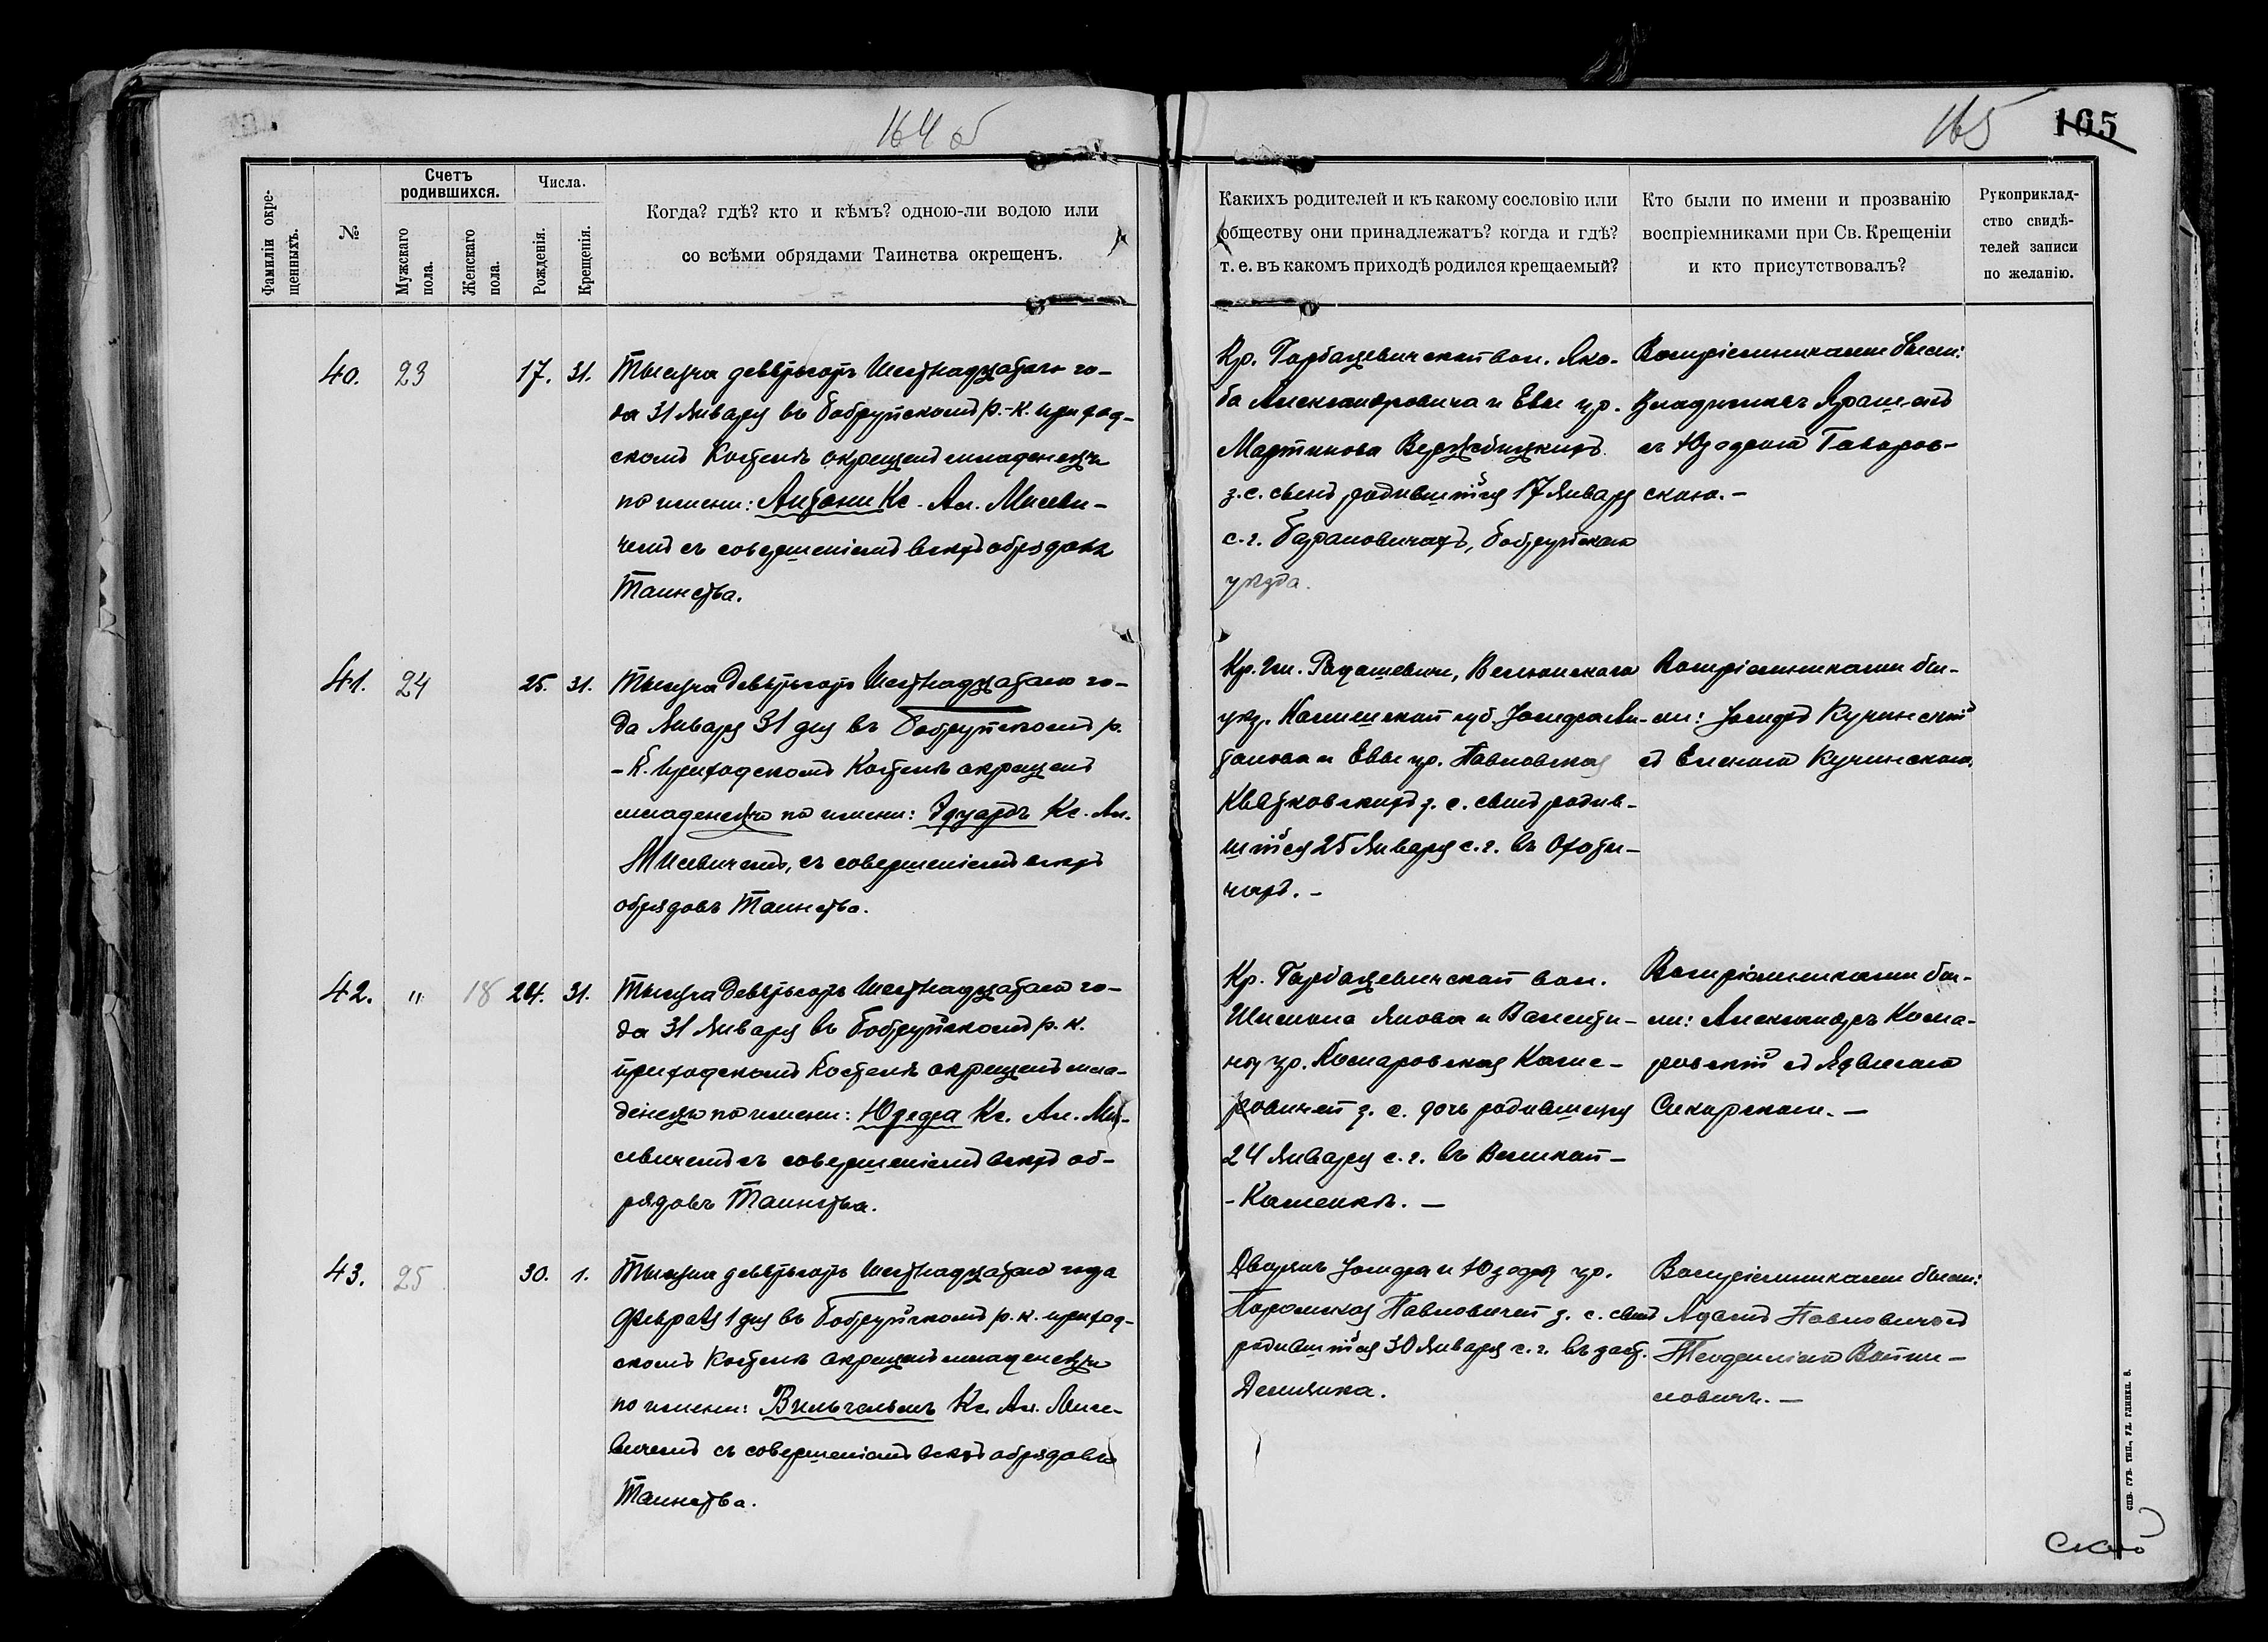 164 об
165
105
Фамиліи окрещенныхъ.
№
Счетъ родившихся.
Мужскаго пола.
Женскаго пола.
Числа.
Рожденія.
Крещенія.
Когда? гдѣ? кто и кѣмъ? одною-ли водою или
со всѣми обрядами Таинства окрещенъ.
Какихъ родителей и къ какому сословію или
обществу они принадлежатъ? когда и гдѣ?
т. е. въ какомъ приходѣ родился крещаемый?
Кто были по имени и прозванію
воспріемниками при Св. Крещеніи
и кто присутствовалъ?
Рукоприклад-
ство свидѣ-
телей записи
по желанію.
40. 23 17. 31.
Тысяча девятьсотъ Шестнадцатаго го-
да 31 Января въ Бобруйскомъ р.-к. приход-
скомъ Костелѣ окрещенъ младенецъ
по имени: Антони Кс. Ал. Мисеви-
чемъ съ совершеніемъ всѣхъ обрядовъ
Таинства.
Кр. Горбацевичской вол. Яко-
ба Александровича и Евы ур.
Мартинова
з. с. сынъ, родившійся 17 Января
с. г. Барановичахъ, Бобруйскаго
уѣзда.
Воспріемниками были:
Владиславъ
съ Юзефою Говоров-
скою. –
41. 24 25. 31.
Тысяча Девятьсотъ Шестнадцатаго го-
да Января 31 дня въ Бобруйскомъ р.
-к. приходскомъ Костелѣ окрещенъ
младенецъ по имени: Эдуардъ Кс. Ал.
Мисевичемъ, съ совершеніемъ всѣхъ
обрядовъ Таинства.
Кр. гм. Велюнскаго
уѣз. Калишской губ. Іосифа Ан-
тонова и Евы ур. Павловской
Квятковскихъ з. с. сынъ родив-
шійся 25 Января с. г. въ Охоти-
чахъ. –
Воспріемниками бы-
ли: Іосифъ Кучинскій
съ Еленою Кучинскою.
42. " 18 24. 31.
Тысяча Девятьсотъ Шестнадцатаго го-
да 31 Января въ Бобруйскомъ р. к.
приходскомъ Костелѣ окрещенъ мла-
денецъ по имени: Юзефа Кс. Ал. Ми-
севичемъ съ совершеніемъ всѣхъ об-
рядовъ Таинства.
Кр. Горбацевичской вол.
Шимона Янова и Валенти-
ны ур. Комаровская
з. с. дочь родившаяся
24 Января с. г. въ Великой-
-Каменкѣ. –
Воспріемниками бы-
ли: Александръ Кома-
ровскій съ Ядвигою
Сикорскою. –
43. 25 30. 1.
Тысяча девятьсотъ Шестнадцатаго года
Февраля 1 дня въ Бобруйскомъ р. к. приход-
скомъ Костелѣ окрещенъ младенецъ
по имени: Вильгельмъ Кс. Ал. Мисе-
вичемъ съ совершеніемъ всѣхъ обрядовъ
Таинства.
Дворянъ Іосифа и Юзефы ур.
Павловичей з. с. сынъ
родившійся 30 Января с. г. въ заст.
Воспріемниками были:
Адамъ Павловичъ съ
Теофиліею Войни-
ловичъ. –
СПБ. ГУБ. ТИП., УЛ. ГЛИНКИ. 8.